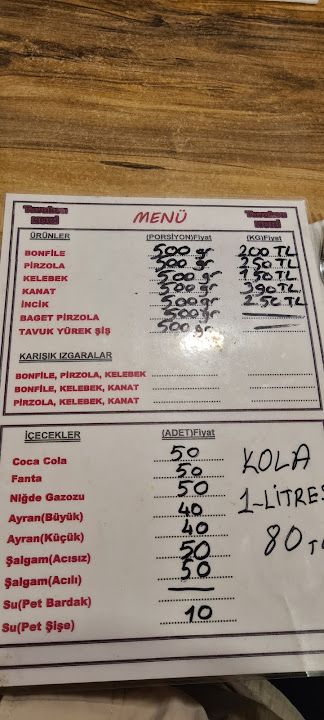 MENÜ
ÜRÜNLER (PORSİYON)Fiyat (KG)Fiyat
BONFİLE 500 gr 200 TL
PİRZOLA 500 gr 250 TL
KELEBEK 500 gr 250 TL
KANAT 500 gr 390 TL
İNCİK 500 gr 250 TL
BAGET PİRZOLA 500 gr
TAVUK YÜREK ŞİŞ 500 gr
KARIŞIK IZGARALAR
BONFİLE, PİRZOLA, KELEBEK
BONFİLE, KELEBEK, KANAT
PİRZOLA, KELEBEK, KANAT
İÇECEKLER (ADET)Fiyat
Coca Cola 50
Fanta 50
Niğde Gazozu 50
Ayran(Büyük) 40
Ayran(Küçük) 40
Şalgam(Acısız) 50
Şalgam(Acılı) 50
Su(Pet Bardak)
Su(Pet Şişe) 10
KOLA
1-LİTRES
80